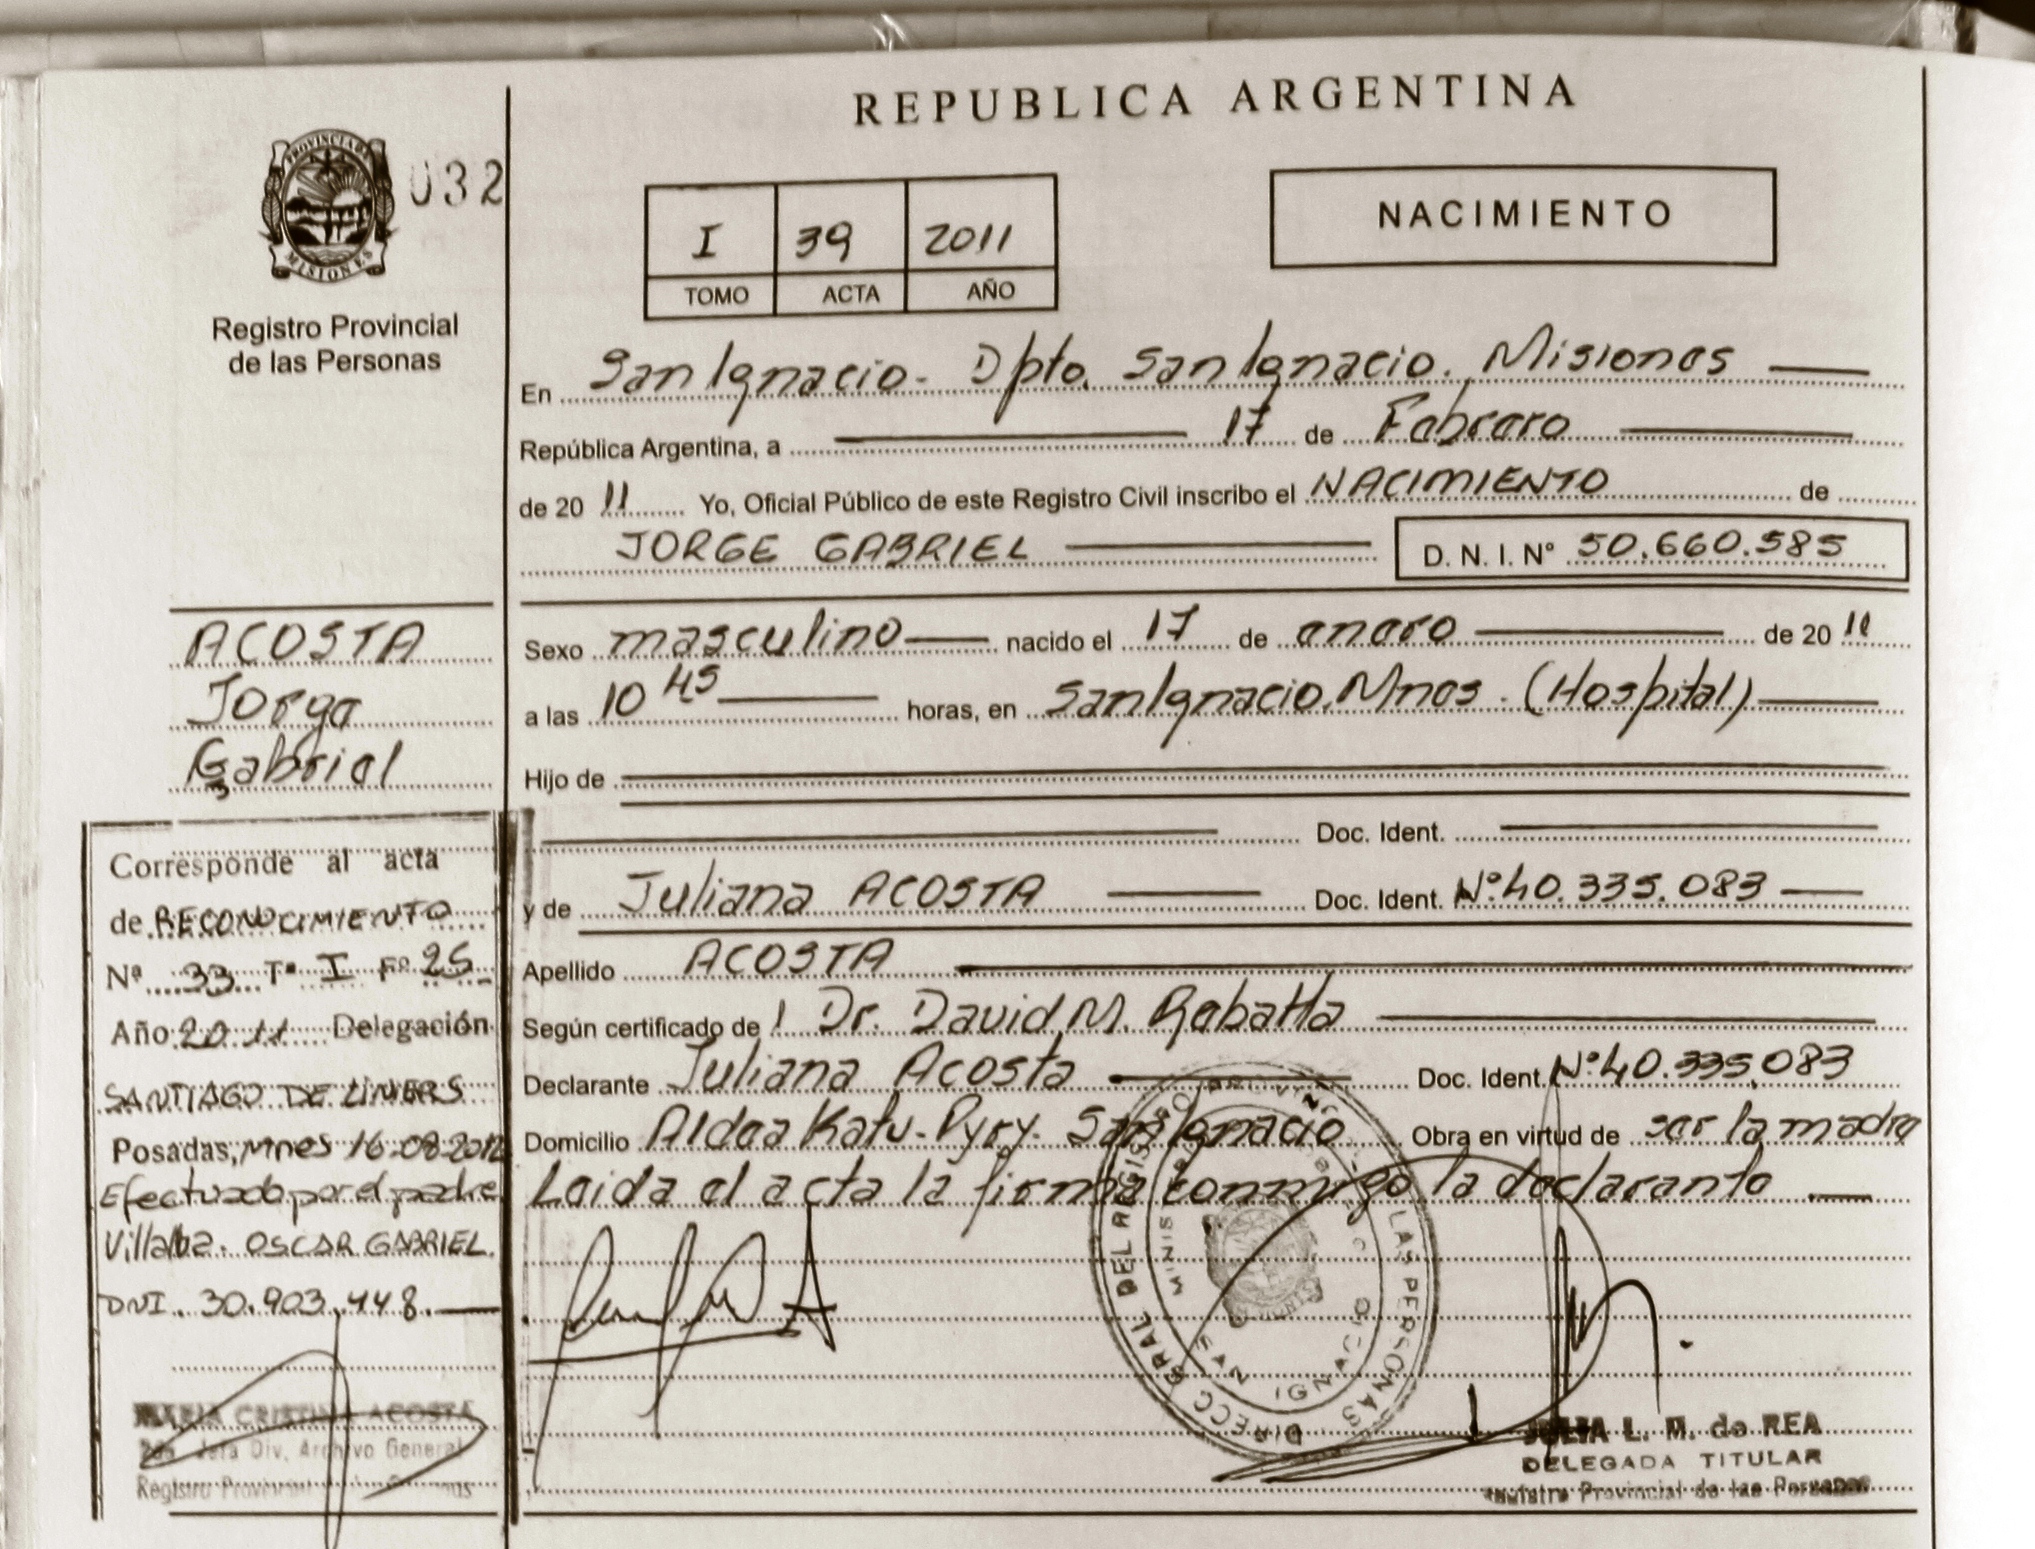 REPUBLICA ARGENTINA
PROVINCIA DE
MISIONES
032
Registro Provincial
de las Personas
I 39 2011
TOMO ACTA AÑO
NACIMIENTO
En San Ignacio. Dpto. San Ignacio. Misiones
República Argentina, a 17 de Febrero
de 20 11 Yo, Oficial Público de este Registro Civil inscribo el NACIMIENTO de
JORGE GABRIEL D. N. I. N° 50.660.585
Sexo masculino nacido el 17 de enero de 20 11
a las 10 45 horas, en San Ignacio. Mnes. (Hospital)
Hijo de
Doc. Ident.
y de Juliana ACOSTA Doc. Ident. N° 40.335.083
Apellido ACOSTA
Según certificado de l Dr. David M.
Declarante Juliana Acosta Doc. Ident. N° 40.335.083
Domicilio Aldea Katu-Pyry. San Ignacio Obra en virtud de ser la madre
Leida el acta la firma conmigo la declarante
ACOSTA
Jorge
Gabriel
Corresponde al acta
de RECONOCIMIENTO
Nº 33 Tº I Fº 25
Año 2011 Delegación
SANTIAGO DE LINIERS
Posadas, Mnes 16-08-2012
Efectuado por el padre
Villalba. OSCAR GABRIEL.
DNI. 30.903.448.
MARIA CRISTINA ACOSTA
Jefa Div. Archivo General
Registro Provincial
DIRECC GRAL DEL REGISTRO PROVINCIAL DE LAS PERSONAS
SAN IGNACIO
JULIA L. M. de REA
DELEGADA TITULAR
Registro Provincial de las Personas